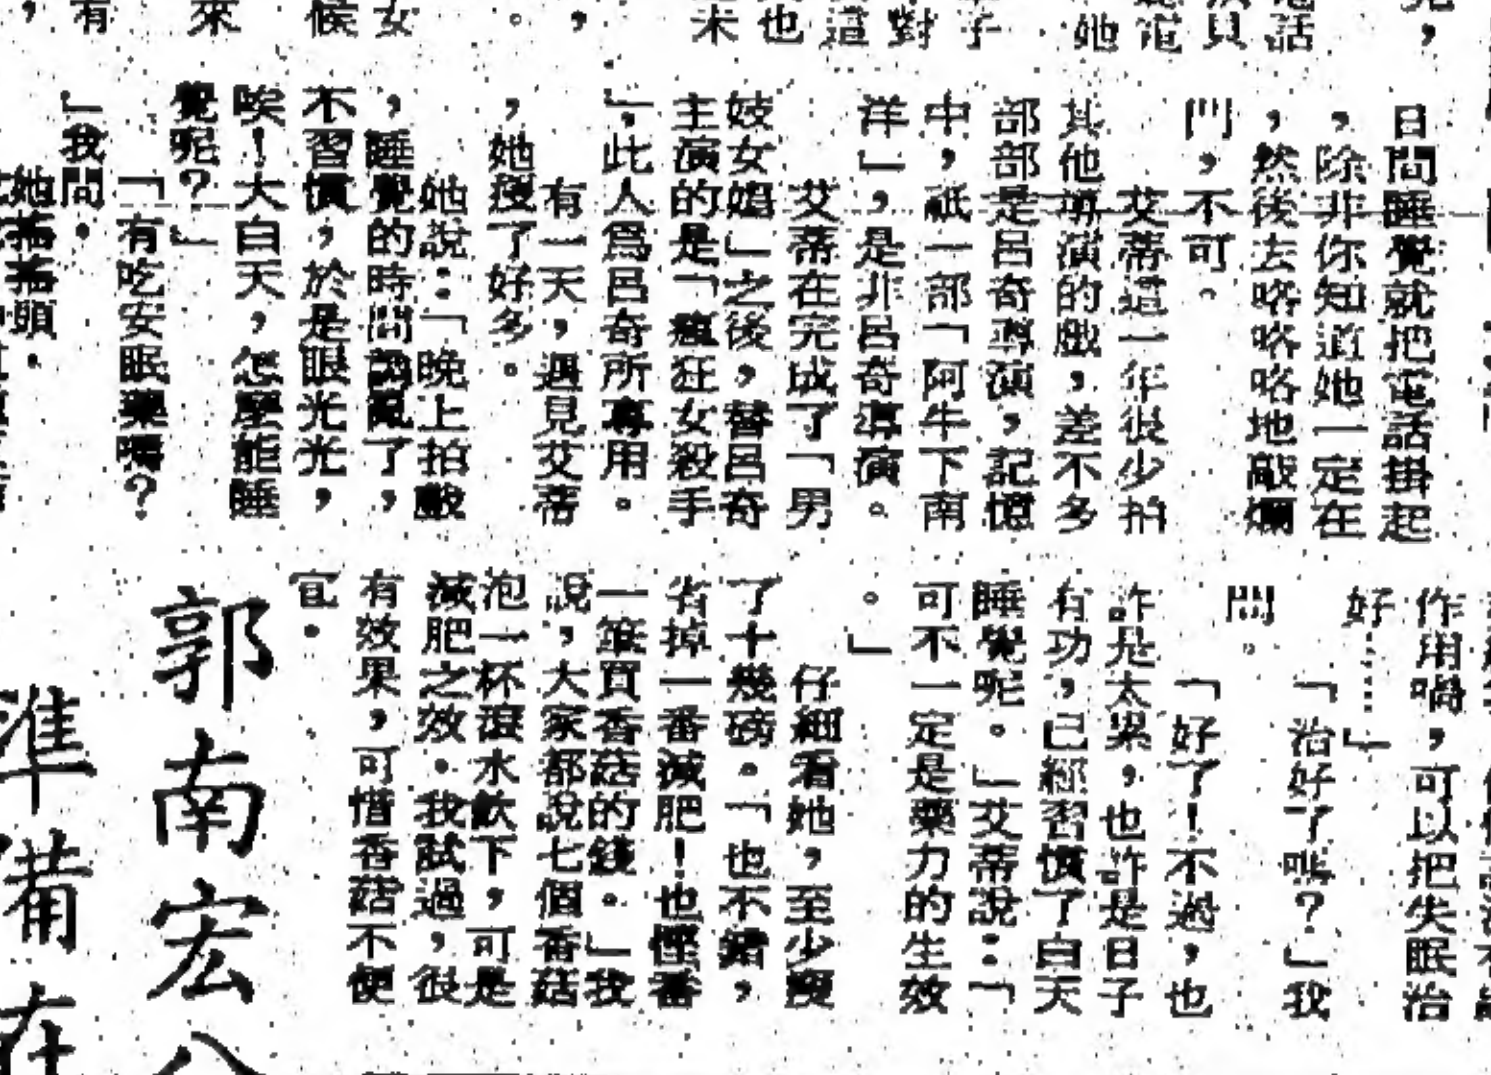 日間睡覺就把電話掛起
，除非你知道她一定在
，然後去咯咯咯地敲爛
門，不可。
艾蒂這一年很少拍
其他導演的戲，差不多
部部是呂奇導演，記憶
中，祇一部「阿牛下南
洋」，是非呂奇導演。
艾蒂在完成了「男
妓女娼」之後，替呂奇
主演的是「瘋狂女殺手
」，此人爲呂奇所專用。
有一天，遇見艾蒂
，她瘦了好多。
她說：「晚上拍戲
，睡覺的時間調亂了，
不習慣，於是眼光光，
唉！大白天，怎麼能睡
覺呢？」
「有吃安眠藥嗎？
」我問．
她搖搖頭．
作用嗬，可以把失眠治
好……」
「治好了嗎？」我
問。
「好了！不過，也
許是太累，也許是日子
有功，已經習慣了白天
睡覺呢。」艾蒂說：「
可不一定是藥力的生效
。」
仔細看她，至少瘦
了十幾磅。「也不錯，
省掉一番減肥！也慳番
一筆買香菇的錢。」我
說，大家都說七個香菇
泡一杯滾水飲下，可是
減肥之效．我試過，很
有效果，可惜香菇不便
宜．
郭南宏
準備在